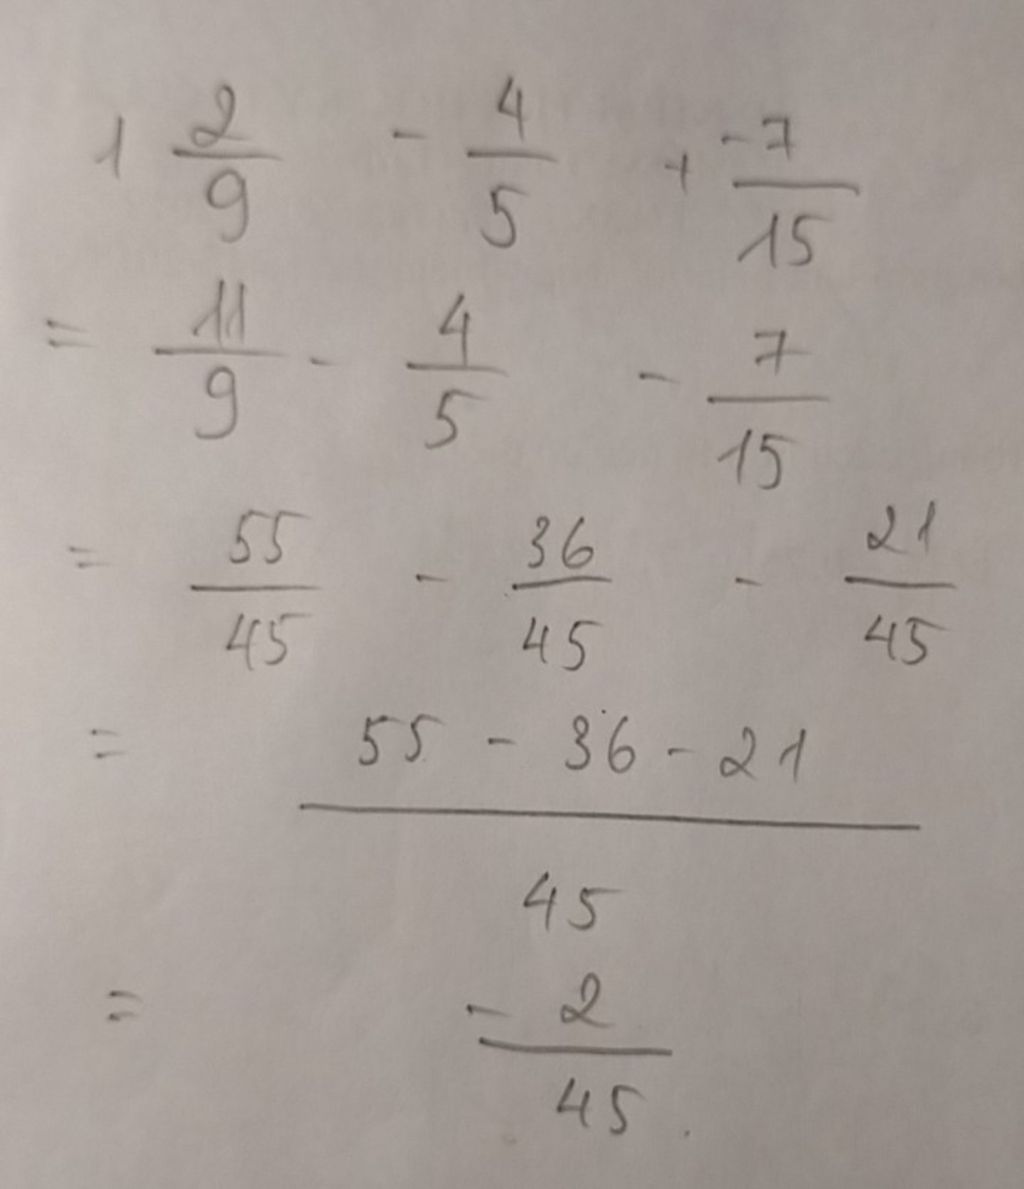 1 2/9 - 4/5 + -7/15
= 11/9 - 4/5 - 7/15
= 55/45 - 36/45 - 21/45
= (55 - 36 - 21)/45
= -2/45.